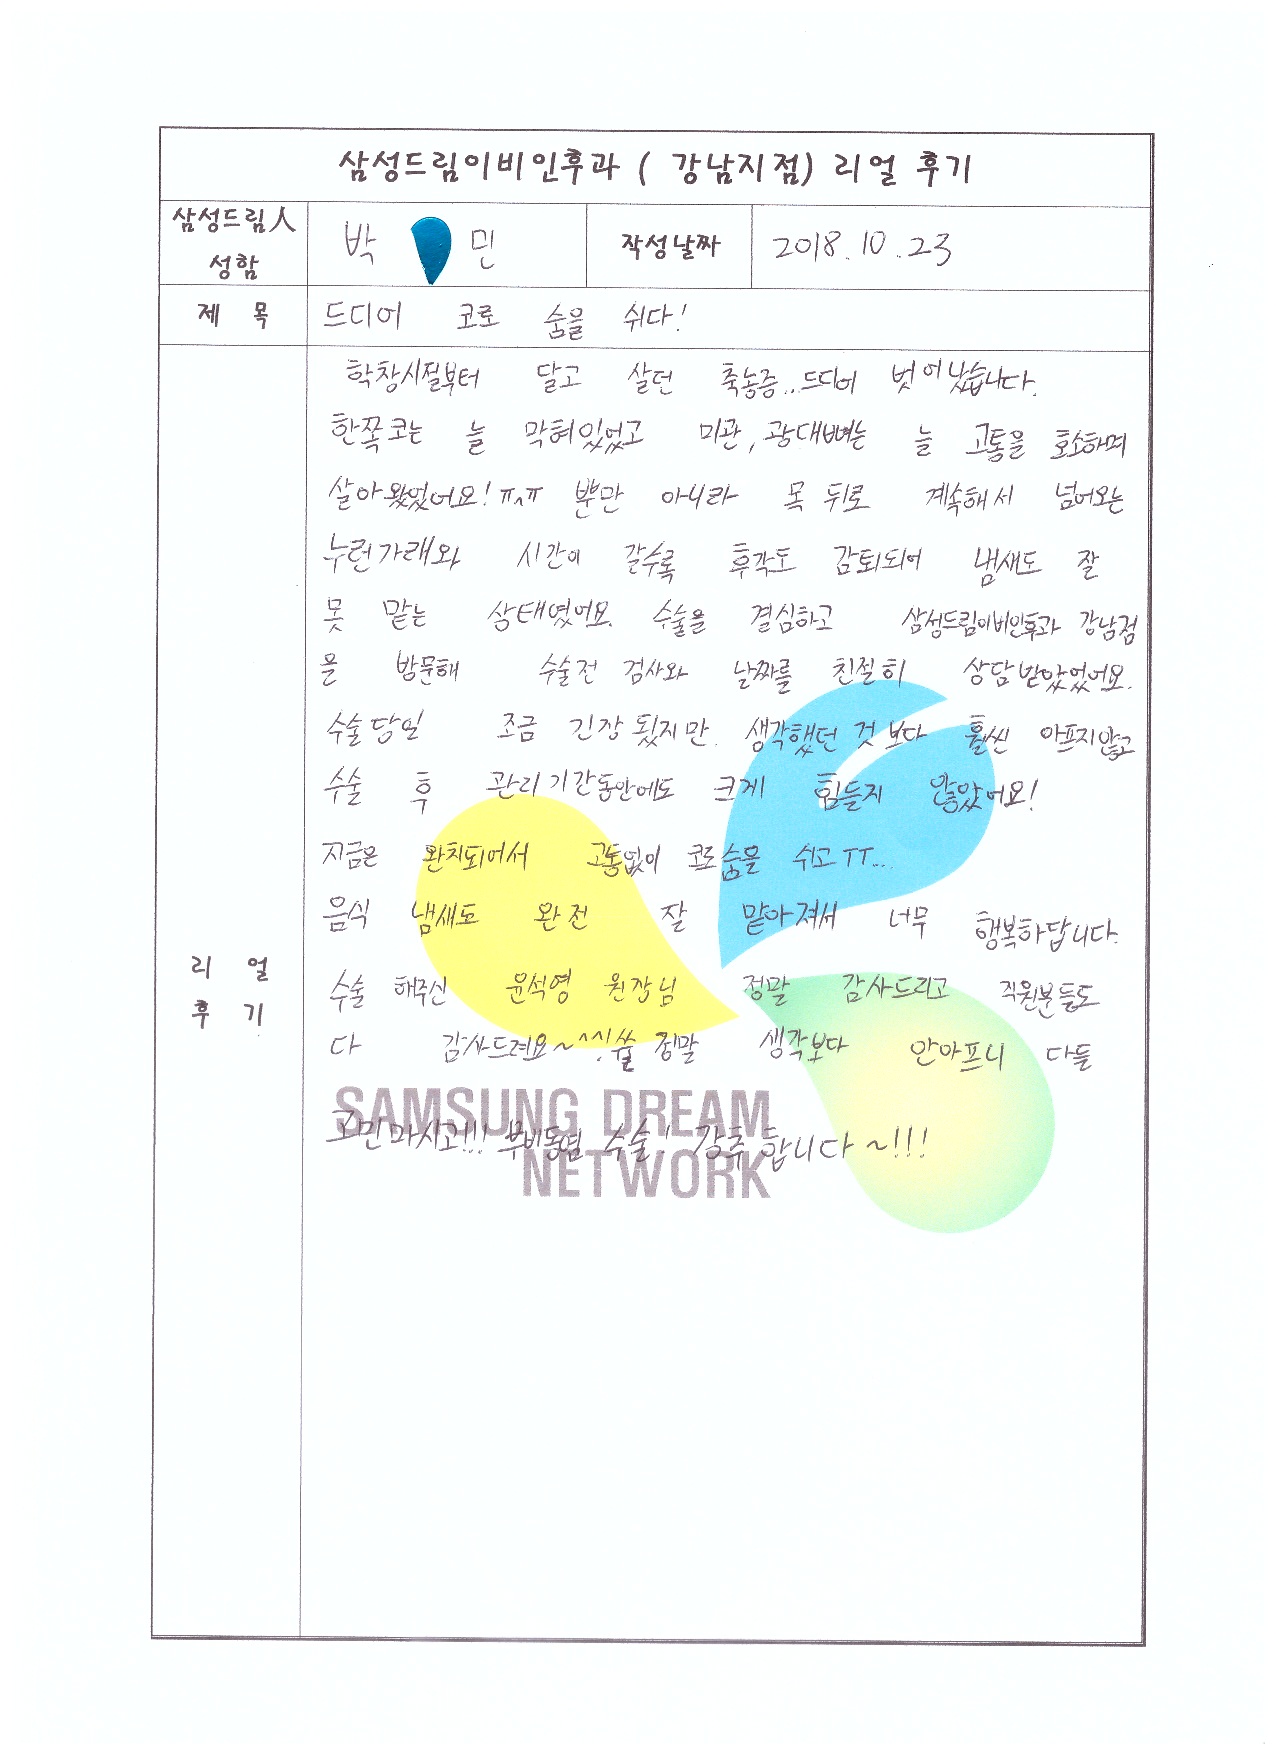 삼성드림이비인후과 ( 강남지점) 리얼 후기
삼성드림人 성함
박 민
작성날짜
2018.10.23
제 목
드디어 코로 숨을 쉬다!
리 얼 후 기
학창시절부터 달고 살던 축농증..드디어 벗어났습니다.
한쪽코는 늘 막혀있었고 미관, 광대뼈는 늘 고통을 호소하며
살아왔었어요! ㅠ^ㅠ 뿐만 아니라 목 뒤로 계속해서 넘어오는
누런가래와 시간이 갈수록 후각도 감퇴되어 냄새도 잘
못 맡는 상태였어요. 수술을 결심하고 삼성드림이비인후과 강남점
을 방문해 수술전 검사와 날짜를 친절히 상담받았었어요.
수술당일 조금 긴장됬지만. 생각했던 것 보다 훨씬 아프지않고
수술 후 관리기간동안에도 크게 힘들지 않았어요!
지금은 완치되어서 고통없이 코로숨을 쉬고TT...
음식 냄새도 완전 잘 맡아져서 너무 행복하답니다.
수술 해주신 윤석영 원장님 정말 감사드리고 직원분들도
다 감사드려요~^^! 정말 생각보다 안아프니 다들
고민마시고!!! 부비동염 수술! 강추합니다~!!!
SAMSUNG DREAM
NETWORK